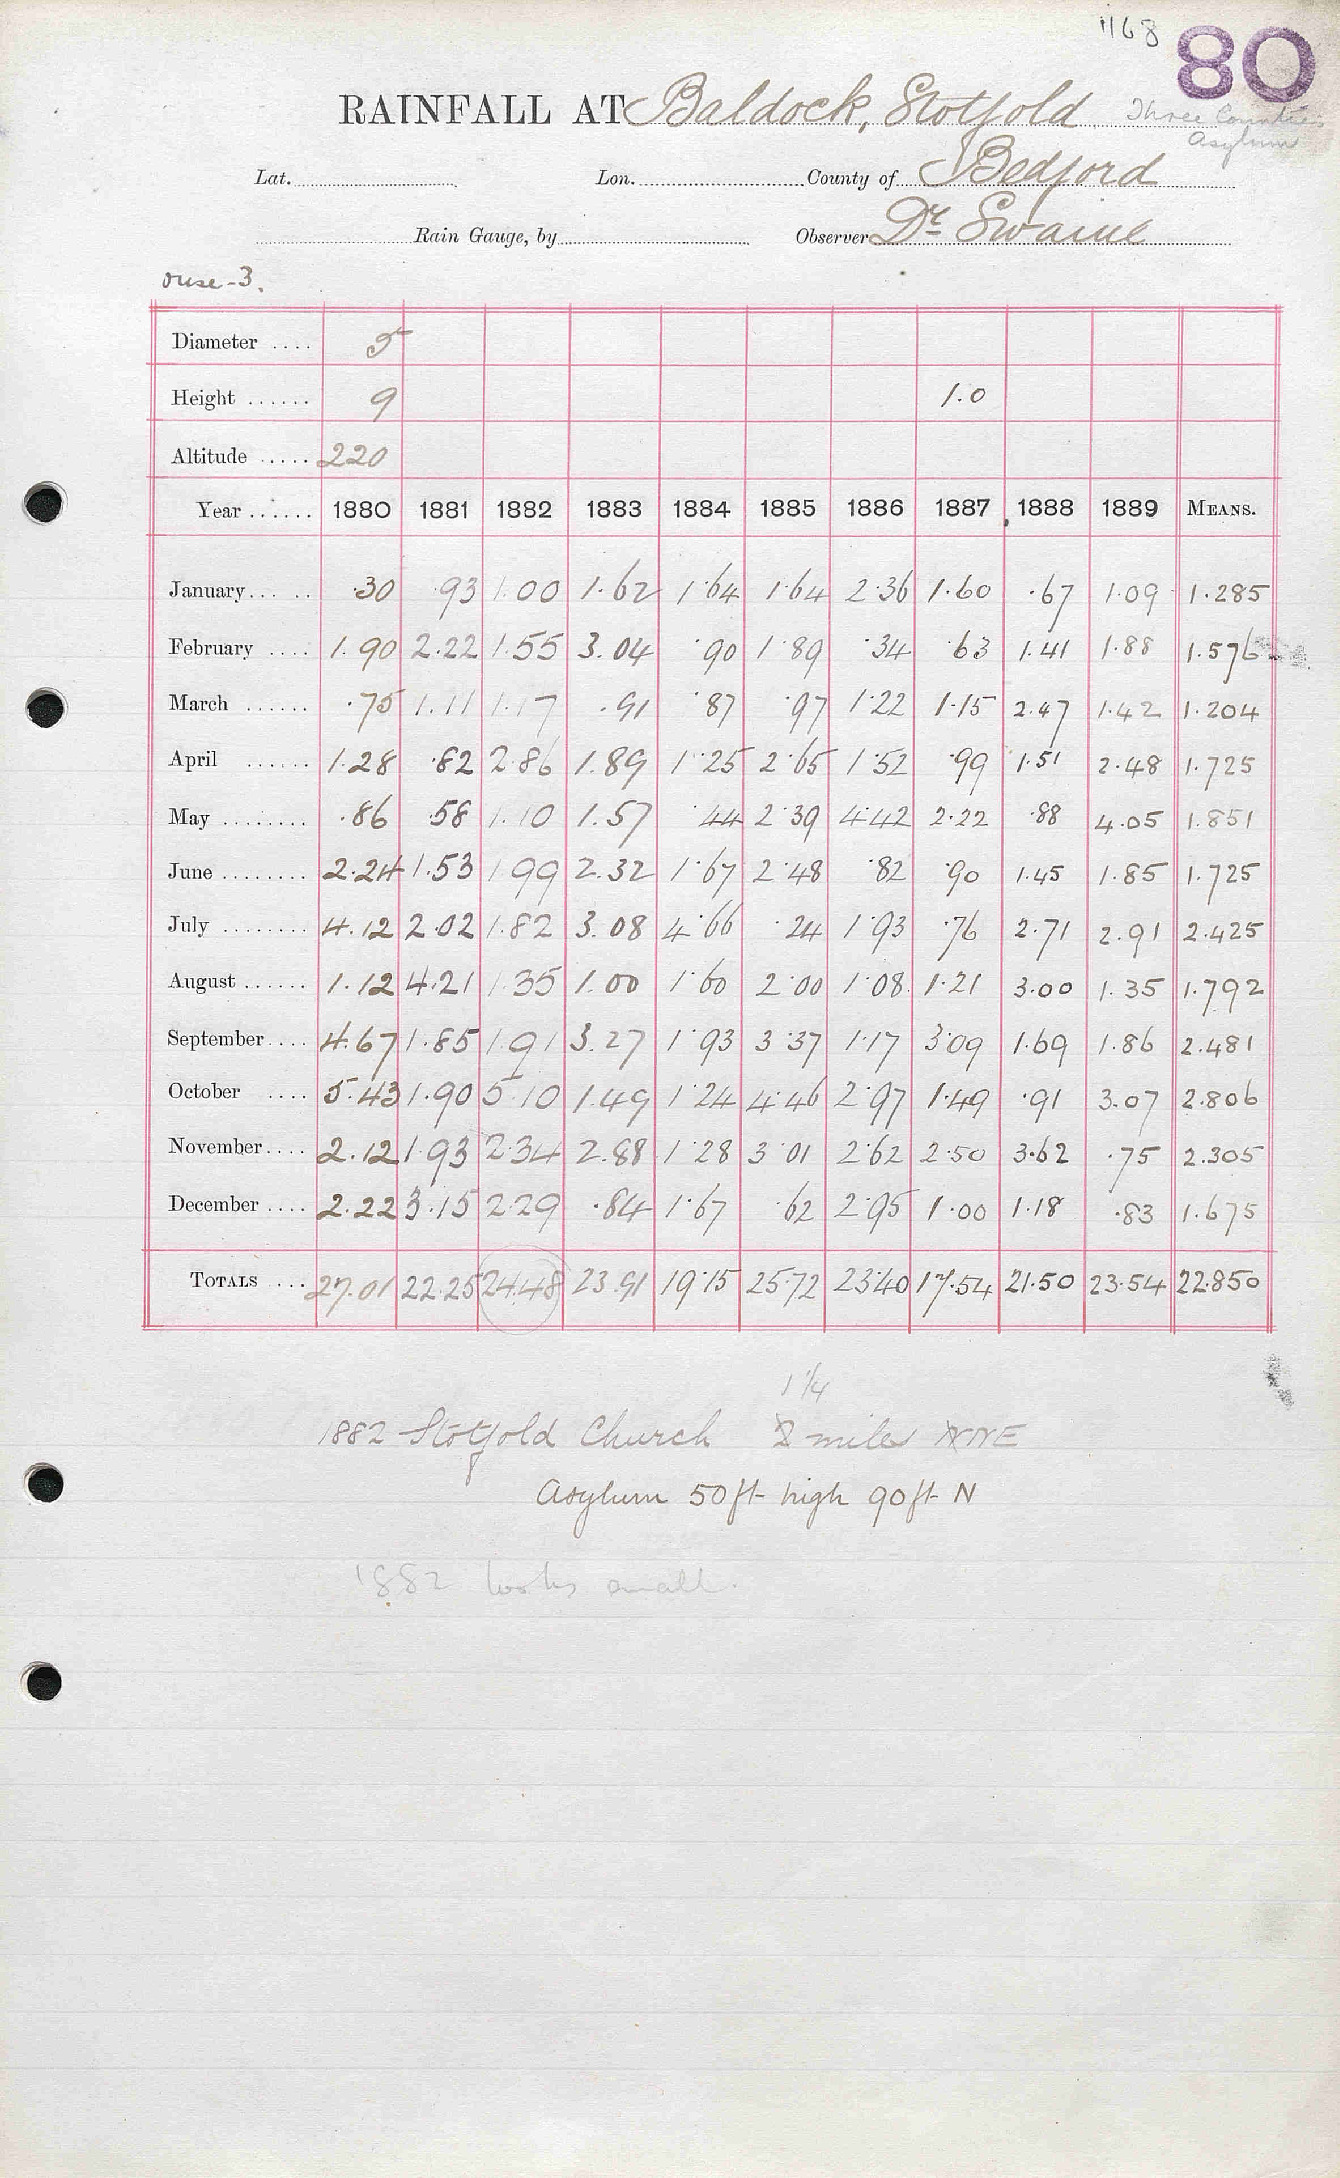 1168 80
RAINFALL AT Baldock, Stotfold Three Counties
Asylum
Lat. Lon. County of Bedford
Rain Gauge, by Observer Dr. Swaine
ouse-3.
Diameter .... 5
Height ...... 9 1.0
Altitude ..... 220
Year ...... 1880 1881 1882 1883 1884 1885 1886 1887 1888 1889 MEANS.
January ... .30 .93 1.00 1.62 1.64 1.64 2.36 1.60 .67 1.09 1.285
February .... 1.90 2.22 1.55 3.04 .90 1.89 .34 .63 1.41 1.88 1.576
March ...... .75 1.11 1.17 .91 .87 .97 1.22 1.15 2.47 1.42 1.204
April ...... 1.28 .82 2.86 1.89 1.25 2.65 1.52 .99 1.51 2.48 1.725
May ........ .86 .58 1.10 1.57 .44 2.39 4.42 2.22 .88 4.05 1.851
June ........ 2.24 1.53 1.99 2.32 1.67 2.48 .82 .90 1.45 1.85 1.725
July ........ 4.12 2.02 1.82 3.08 4.66 .24 1.93 .76 2.71 2.91 2.425
August ...... 1.12 4.21 1.35 1.00 1.60 2.00 1.08 1.21 3.00 1.35 1.792
September .... 4.67 1.85 1.91 3.27 1.93 3.37 1.17 3.09 1.69 1.86 2.481
October .... 5.43 1.90 5.10 1.49 1.24 4.46 2.97 1.49 .91 3.07 2.806
November .... 2.12 1.93 2.34 2.88 1.28 3.01 2.62 2.50 3.62 .75 2.305
December .... 2.22 3.15 2.29 .84 1.67 .62 2.95 1.00 1.18 .83 1.675
TOTALS ... 27.01 22.25 24.48 23.91 19.15 25.72 23.40 17.54 21.50 23.54 22.850
1 1/4
1882 Stotfold Church 2 miles NNE
Asylum 50ft high 90ft N
1882 looks small.